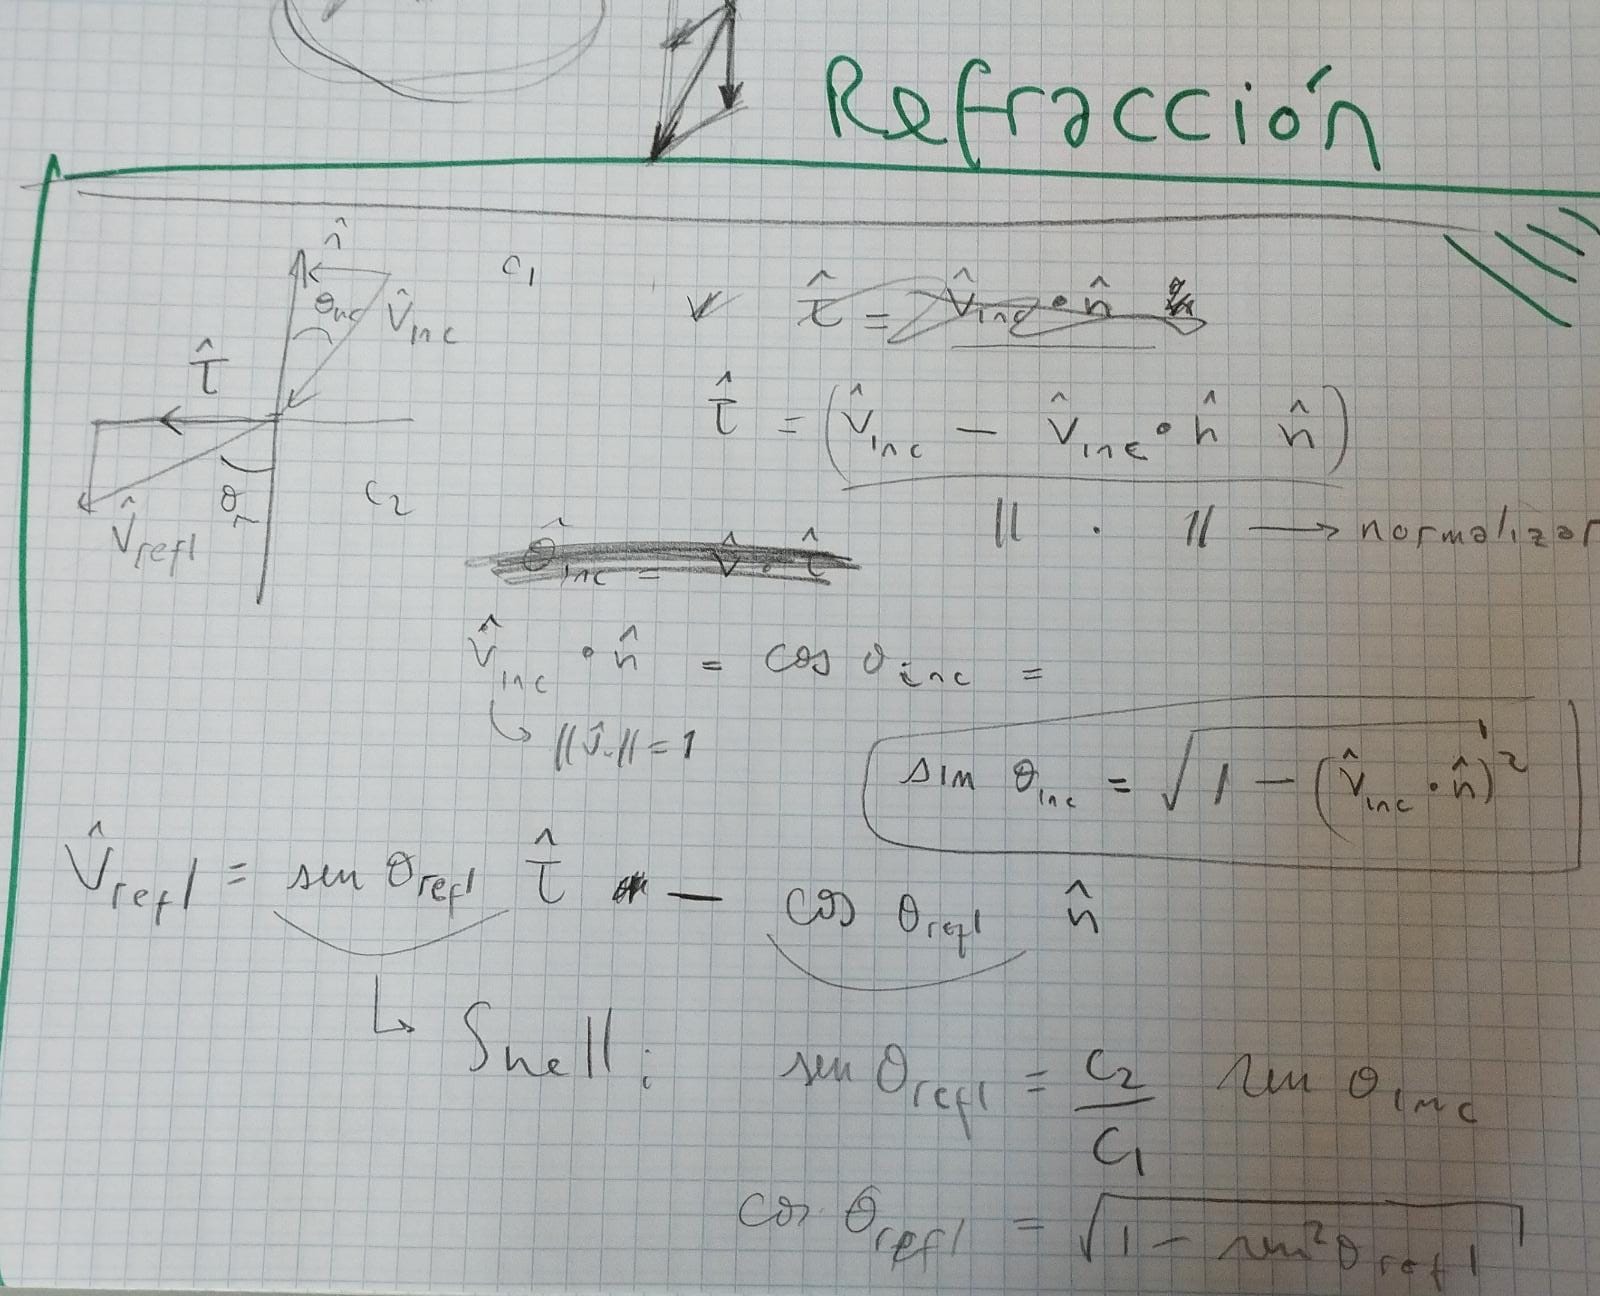 Refracción
n̂
θinc
V̂inc
C1
τ̂
θr
V̂refl
C2
τ̂ = V̂inc • n̂
τ̂ = (V̂inc − V̂inc • n̂ n̂)
|| . || → normalizar
θ̂inc = V̂ • τ̂
V̂inc • n̂ = cos θinc =
↳ ||V̂.|| = 1
sin θinc = √1 − (V̂inc • n̂)²
V̂refl = sen θrefl τ̂ − cos θrefl n̂
↳ Snell: sen θrefl = C2/C1 sen θinc
cos θrefl = √1 − sen²θrefl